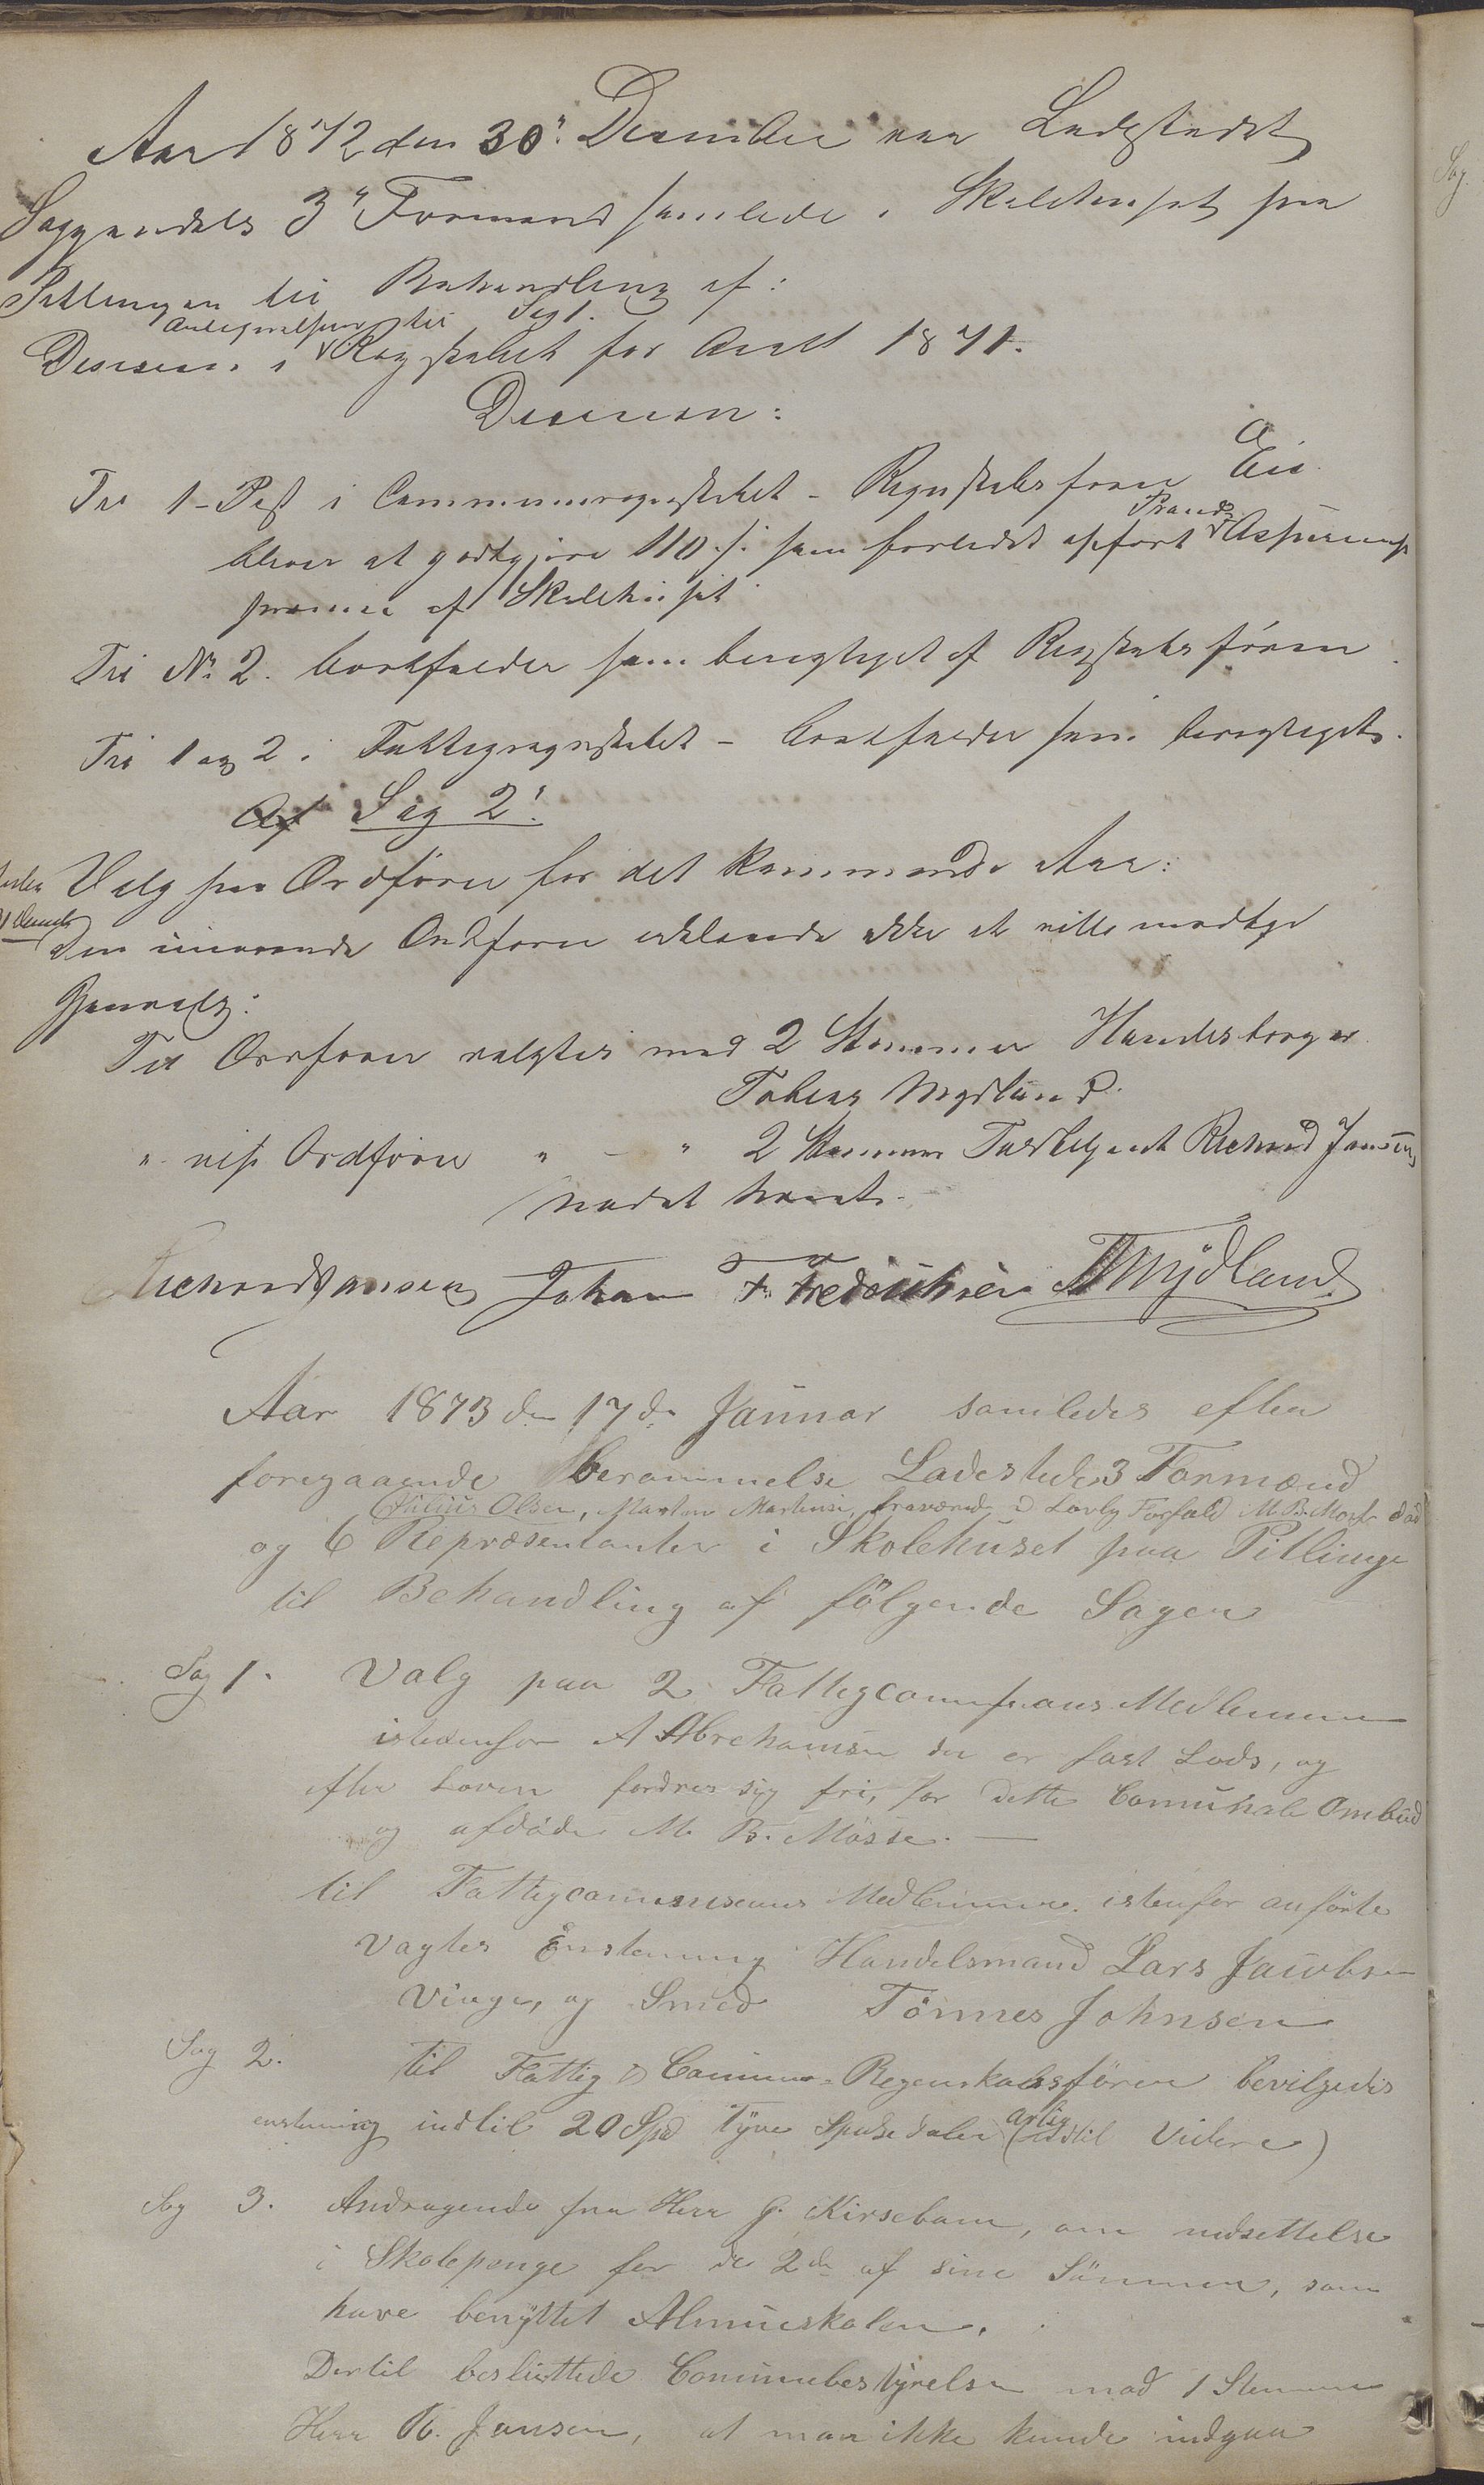 Aar 1872 den 30" December var Ladestedet
Soggendals 3" Formænd samlede i Skolehuset paa
Pitlingen til Behandling af:
Antegnelsene til Sag 1.
Decision i Regnskabet for Aaret 1871.
Decision:
Til 1-Post i Communeregnskabet - Regnskabsføreren
bliver at godtgjøre 110 s. som forledet opført Brand Assurance
præmie af Skolehuset
Til No 2. bortfalder som berigtiget af Regnskabsføreren
Til 1 og 2 i Fattigregnskabet - bortfalder som berigtiget.
Sag 2.
Valg paa Ordfører for det kommende Aar:
Den nuværende Ordfører erklærede ikke at ville modtage
Gjenvalg:
Til Ordfører valgtes med 2 Stemmer Handelsborger
Tobias Mydland.
" vise Ordfører " - " 2 Stemmer Toldbetjent Richard Jansen
Mødet hævet.
Richard Jansen Johan F. Fredrichsen T Mydland
Aar 1873 den 17de Januar samledes efter
foregaaende Berammelse Ladestedets 3 Formænd
Julius Olsen, Morten Martinsen, fraværende i Lovlig Forfald M. B. Mosse død
og 6 Repræsentanter i Skolehuset paa Pitlinge
til Behandling af følgende Sager
Sag 1. Valg paa 2 Fattigcommissions Medlemmer
istedenfor A Abrehamsen der er fast Lods, og
efter Loven fordrer sig fri, for dette Comunale Ombud
og afdøde M. B. Mosse. -
til Fattigcommissions Medlemmer istenfor anførte
Valgtes Enstemmig Handelsmand Lars Jacobsen
Vinge, og Smed Tönnes Johnsen
Sag 2. til Fattig & Commune-Regenskabsfører bevilgedes
enstemmig indtil 20 Spd Tyve Speciedaler Aarlig (indtil Videre)
Sag 3. Andragende fra Herr G. Kirsebom, om nedsettelse
i Skolepenge for de 2de af sine Sönner, som
have benyttet Almueskolen.
Dertil besluttede Comunebestyrelsen mod 1 Stemme
Herr R. Jansen, at man ikke kunde indgaa